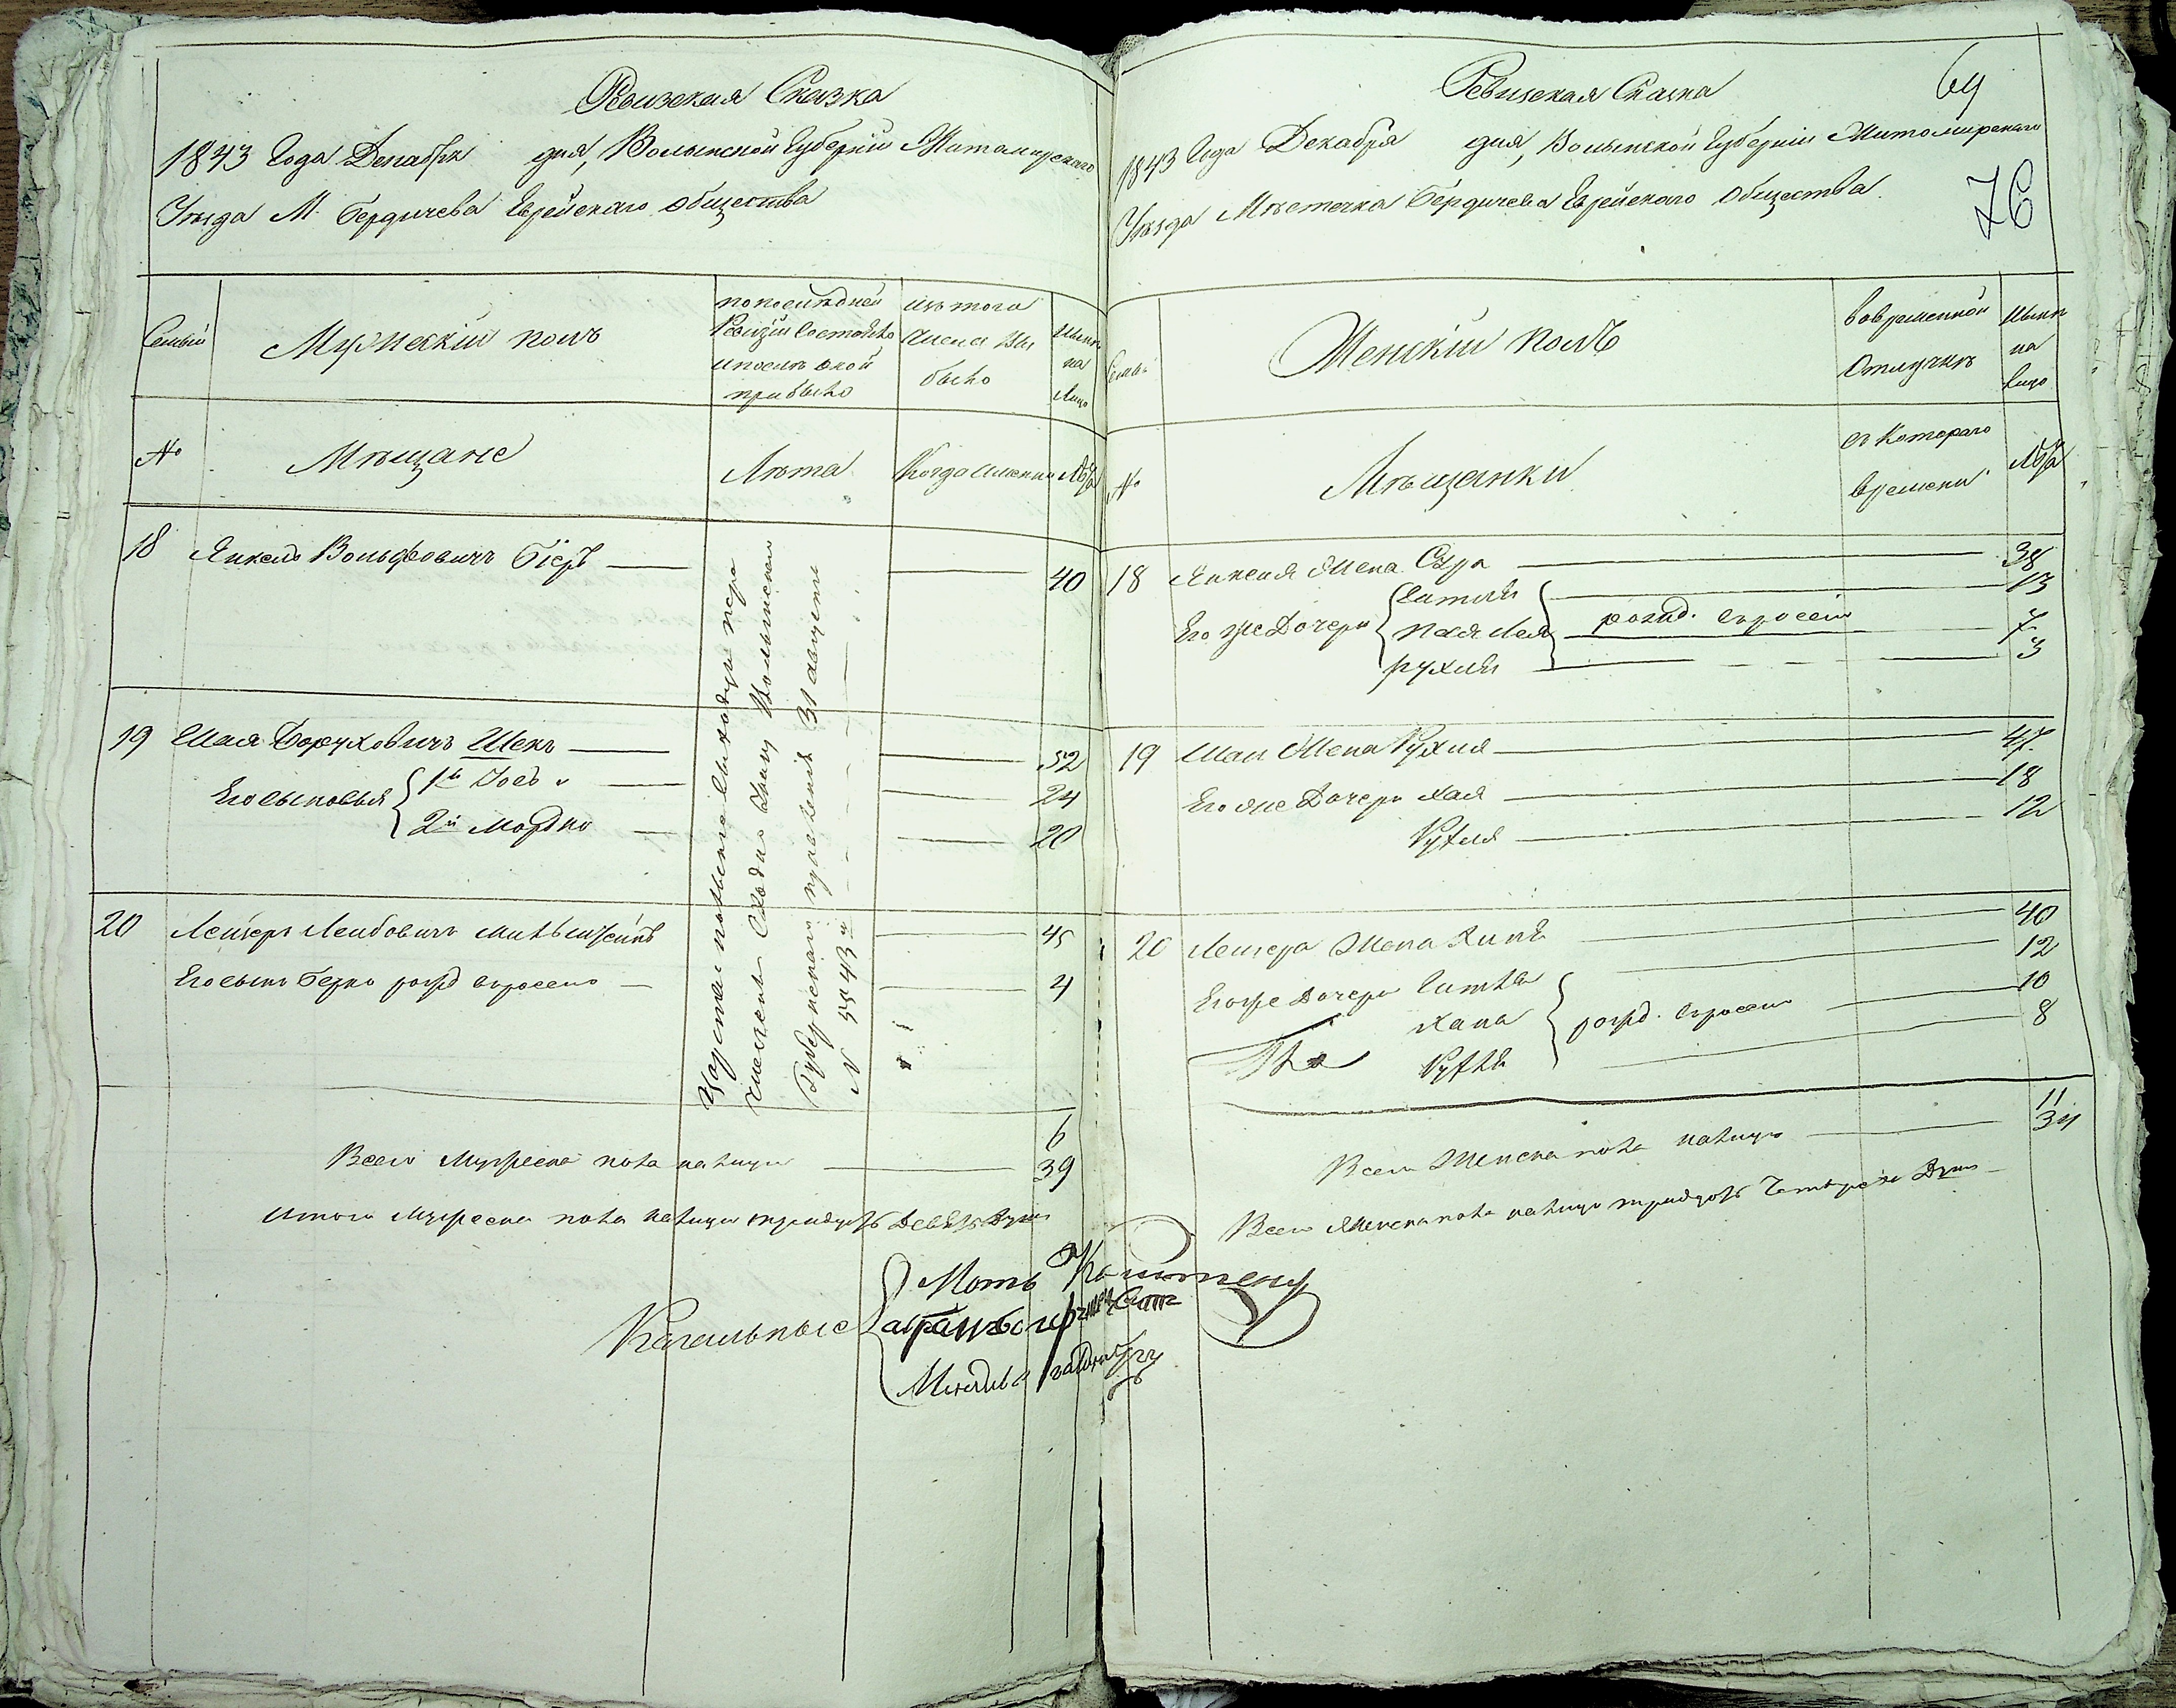 Ревизская Сказка
1843 Года Декабря дня, Волынской Губернии Житомирского
Уезда М. Бердичева Еврейскаго общества
Семьи
Мужескій полъ
по последней Ревизіи состояло и после оной прибыло
изъ того числа выбыло
ныне на лицо
№
Мещане
Лета
Когда именно
Лета
18 Янкель Вольфовичъ Бíеръ 40
19 Шая Боруховичъ Шекъ 52
Его сыновья 1й Іосъ 24
2й Мордко 20
20 Лейзеръ Лейбовичъ 45
Его сынъ Берко рожд. въ россіи 4
Губернскаго правленія 31 августа
№ 5543
6
Всего Мужеска пола на лицо 39
Итого Мужеска пола на лицо тридцать Девять Душъ
Кагальные
Ревизская Сказка
69
76
1843 Года Декабря дня, Волынской Губерніи Житомирскаго
Уезда Местечка Бердичева Еврейскаго Общества
Женскій Полъ
во временной отлучке
ныне на лицо
№
Мещанки
съ Котораго времени
Лета
18 Янкеля Жена Сура 38
Его же Дочери Гитля 13
рожд. въ россіи 7
рухля 3
19 Шаи Жена Рухля 47
Его же Дочери Хая 18
Руфля 12
20 Лейзера Жена 40
Его же Дочери Гитля 12
Хана рожд. въ россіи 10
8
11
Всего Женска пола на лицо 34
Всего Женска пола на лицо тридцать Четыре Душъ